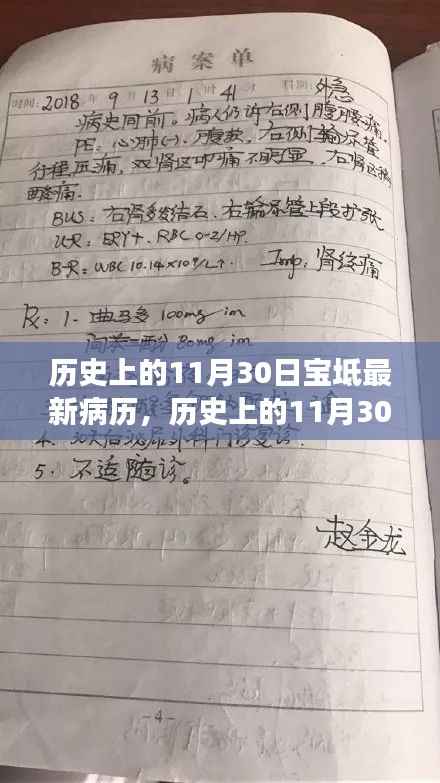 病案单
时间：2018年9月13日1时41分 科别：外急
病史同前。病人仍诉右侧腹腰痛。
PE：心肺(-)，腹软，右侧输尿管
行程压痛，双肾区叩痛不明显，右肾区
酸痛。
BUS：右肾多发结石、右输尿管上段扩张
UR：ERY+，RBC 0-2/HP.
B-R：WBC 10.14×10⁹/L↑. Imp：肾绞痛
R：1. 曲马多 100mg im
间苯三酚 80mg im
历史上的11月30日宝坻最
新病历，历史上的11月30
4. 泌尿外科门诊复诊
5. 不适随诊。
赵金龙
-4-